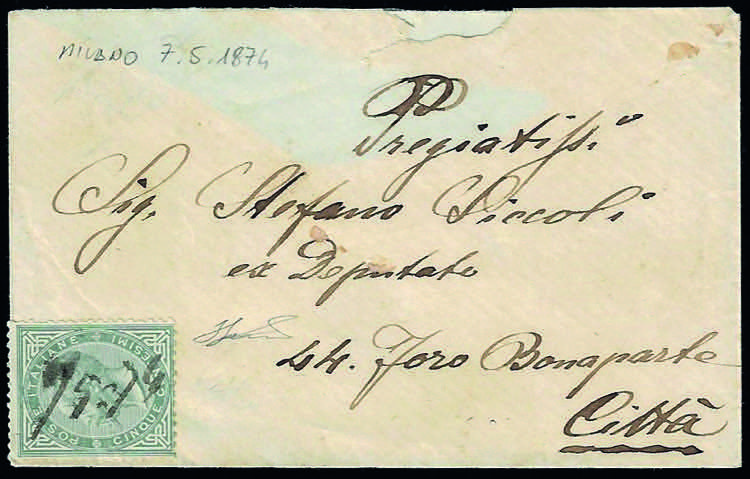 MILANO 7.5.1874
Pregiatissi°
Sig. Stefano Piccoli
ex Deputato
44. Foro Bonaparte
Città
POSTE ITALIANE
CINQUE CENTESIMI
7 5 74